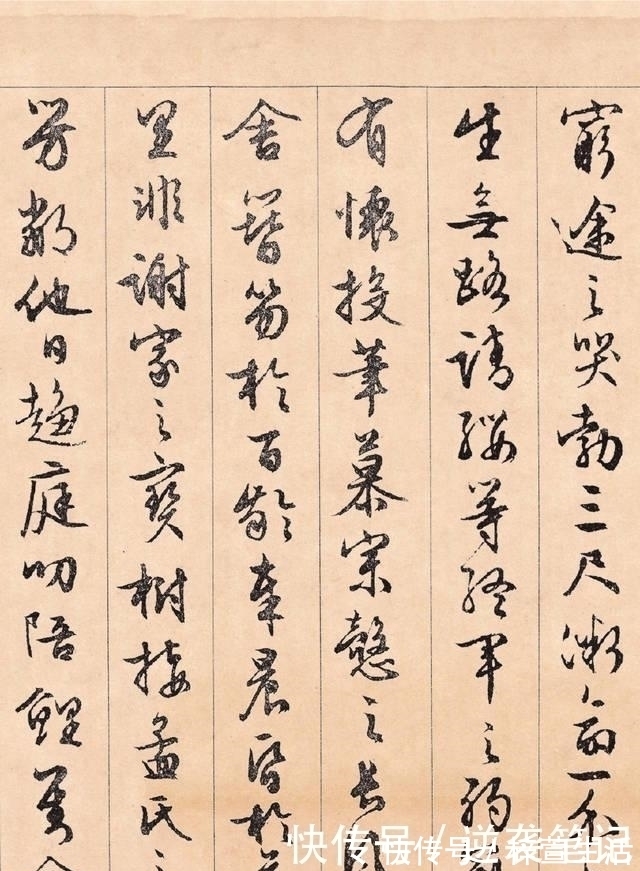 窮途之哭勃三尺微命一介
生無路請纓等終軍之弱
有懷投筆慕宗愨之長風
舍簪笏於百齡奉晨昏於萬
里非謝家之寶樹接孟氏之
芳鄰他日趨庭叨陪鯉對今
快传号/逆袭笔记